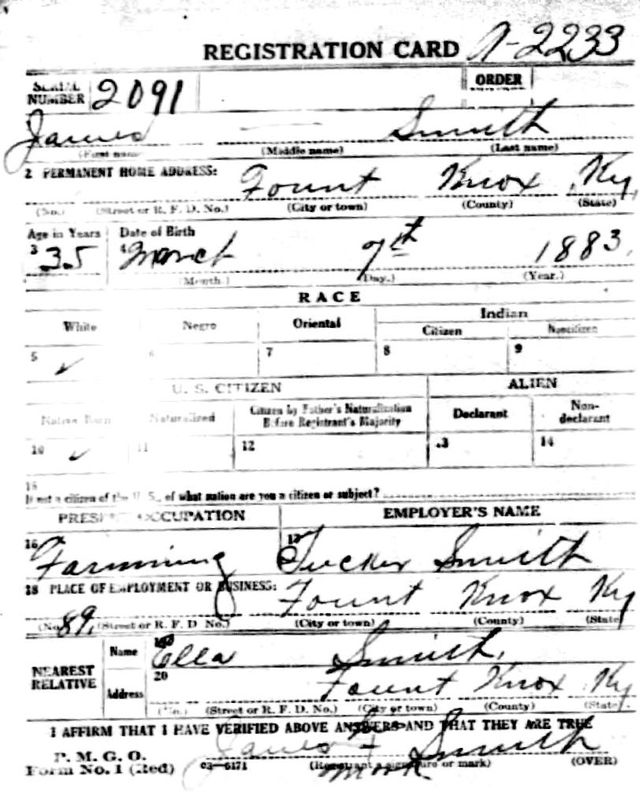 REGISTRATION CARD A-2233
SERIAL NUMBER 2091 ORDER
James — Smith
(First name) (Middle name) (Last name)
2 PERMANENT HOME ADDRESS: Fount Knox Ky.
(No.) (Street or R. F. D. No.) (City or town) (County) (State)
Age in Years Date of Birth
3 35 4 March 7th 1883.
(Month) (Day.) (Year.)
RACE
White Negro Oriental Indian
Citizen Noncitizen
5 ✓ 6 7 8 9
U. S. CITIZEN ALIEN
Native Born Naturalized Citizen by Father's Naturalization Before Registrant's Majority Declarant Non-declarant
10 ✓ 11 12 13 14
15
If not a citizen of the U. S., of what nation are you a citizen or subject?
PRESENT OCCUPATION EMPLOYER'S NAME
16 Farming 17 Tucker Smith
18 PLACE OF EMPLOYMENT OR BUSINESS: Fount Knox Ky
(No.) 89. (Street or R. F. D. No.) (City or town) (County) (State)
NEAREST RELATIVE Name 19 Ella Smith.
Address 20 Fount Knox Ky
(No.) (Street or R. F. D. No.) (City or town) (County) (State)
I AFFIRM THAT I HAVE VERIFIED ABOVE ANSWERS AND THAT THEY ARE TRUE
P. M. G. O. James Smith
Form No. 1 (Red) 03—6171 (Registrant's signature or mark) (OVER)
mark